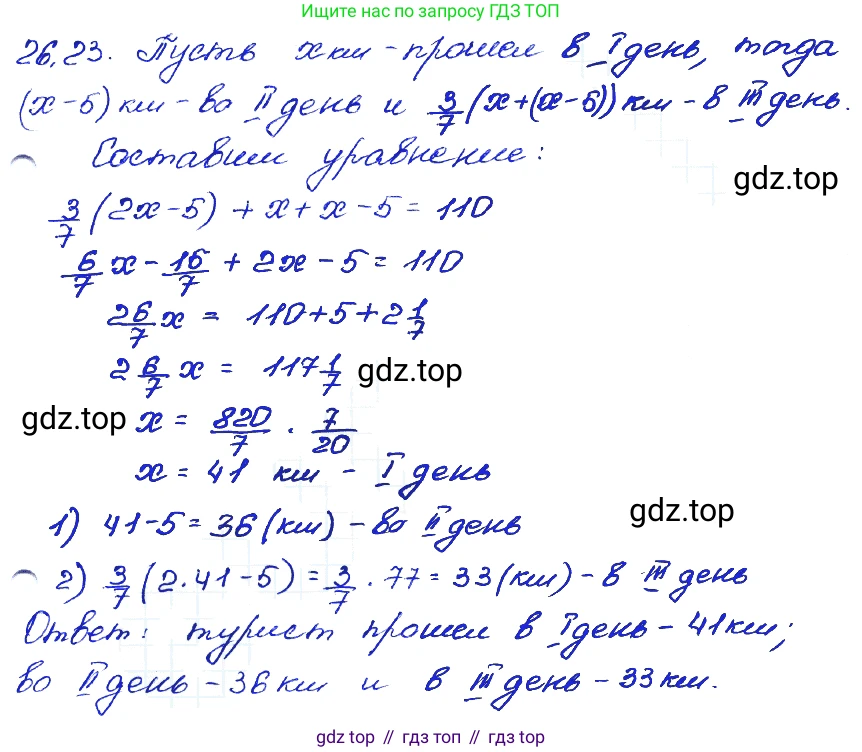 Ищите нас по запросу ГДЗ ТОП
26.23. Пусть x км - прошел в I день, тогда
(x-5) км - во II день и 3/7 (x+(x-5)) км - в III день.
Составим уравнение:
gdz.top
3/7 (2x-5) + x + x - 5 = 110
6/7 x - 15/7 + 2x - 5 = 110
26/7 x = 110+5+2 1/7
2 6/7 x = 117 1/7
gdz.top
gdz.top
x = 820/7 · 7/20
x = 41 км - I день
1) 41-5=36 (км) - во II день
gdz.top
2) 3/7 (2·41-5) = 3/7 · 77 = 33 (км) - в III день
Ответ: турист прошел в I день - 41 км;
во II день - 36 км и в III день - 33 км.
gdz.top // гдз топ // gdz top